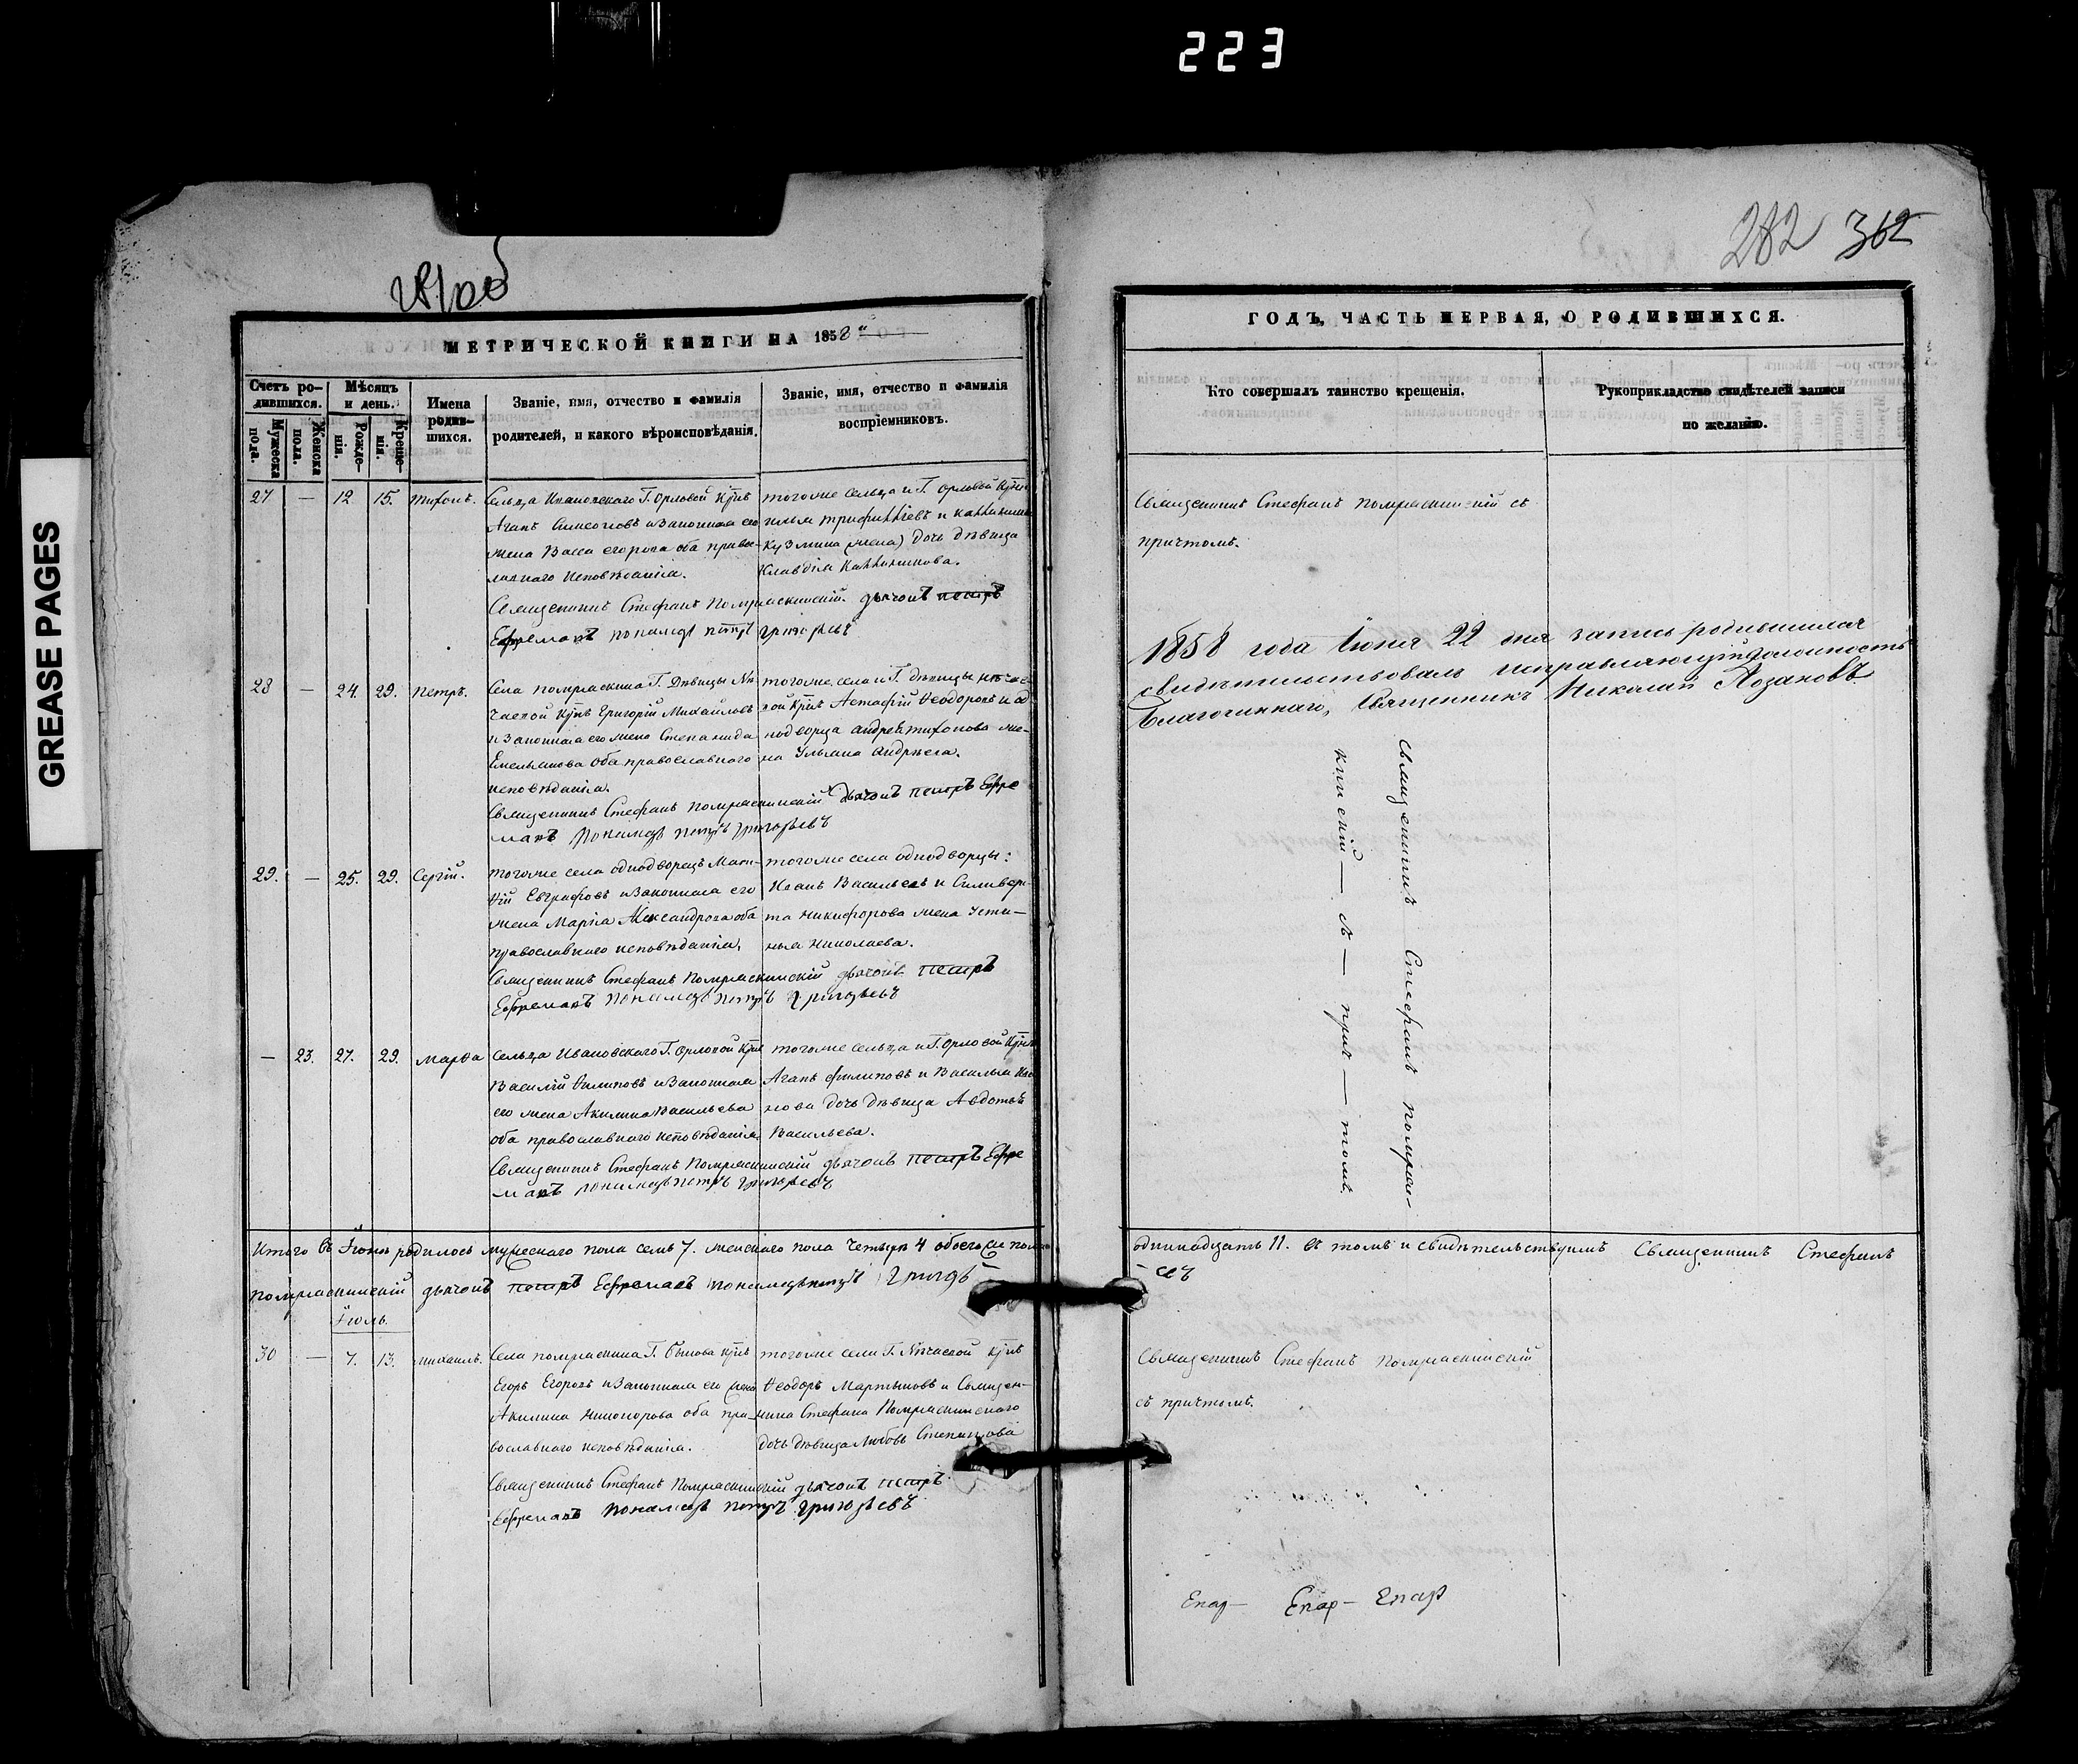 223
GREASE PAGES
281об
МЕТРИЧЕСКОЙ КНИГИ НА 1858
Счетъ ро-
дившихся.
Мужеска
пола.
Женска
пола.
Мѣсяцъ
и день.
Рожде-
нія.
Креще-
нія.
Имена
родив-
шихся.
Званіе, имя, отчество и фамилія
родителей, и какого вѣроисповѣданія.
Званіе, имя, отчество и фамилія
воспріемниковъ.
27 — 12 15. Тихонъ.
Сельца Ивановскаго Г. Орловой
Агапъ Симеоновъ и Законная его
жена Васса Егорова оба право-
лавнаго исповѣданія.
тогоже сельца и Г. Орловой
Кузмина (жена) дочь дѣвица
Клавдія
Священникъ Стефанъ Помряскинскій дьячокъ петръ
Ефремовъ пономарь петръ григорьевъ
28 — 24. 29. Петръ.
Села помряскина Г. Дѣвицы
Григорій Михайловъ
и Законная его жена Степанида
Емельянова оба православнаго
исповѣданія.
тогоже села и Г. дѣвицы
Астафій Ѳеодоровъ и од
нодворца Андрея тихонова же-
на Ульяна Андреева.
Священникъ Стефанъ Помряскинскій дьячокъ петръ Ефре
мовъ пономарь петръ григорьевъ
29. — 25. 29. Сергій.
тогоже села однодворецъ Мат-
ѳій Евграфовъ и Законная его
жена Марія Александрова оба
православнаго исповѣданія,
тогоже села однодворцы:
Иванъ Васильевъ и Силивер-
та Никифорова жена Усти-
нья Николаева.
Священникъ Стефанъ Помряскинскій дьячокъ петръ
Ефремовъ пономарь петръ григорьевъ
— 23. 27. 29. Марѳа
Сельца Ивановскаго Г. Орловой
Василій Филиповъ и Законная
его жена Акилина Васильева
оба православнаго исповѣданія
тогоже сельца и Г. Орловой
Агапъ филиповъ и Василья Ива
нова дочь дѣвица Авдотья
Васильева.
Священникъ Стефанъ Помряскинскій дьячокъ петръ Ефре
мовъ пономарь петръ григорьевъ
Итого въ Іюнѣ родилось мужескаго пола семь 7. женскаго пола четыре 4 обоего
помряскинскій дьячокъ петръ Ефремовъ пономарь петръ
Іюль.
30 — 7. 13. Михаилъ.
Села помряскина Г. Быкова
Егоръ Егоровъ и Законная его жена
Акилина Никонорова оба пра-
вославнаго исповѣданія.
тогоже села Г.
Ѳеодоръ Мартыновъ и Священ-
ника Стефана Помряскинскаго
дочь дѣвица Любовь Степанова
Священникъ Стефанъ Помряскинскій дьячокъ петръ
Ефремовъ пономарь петръ григорьевъ
282 362
ГОДЪ, ЧАСТЬ ПЕРВАЯ, О РОДИВШИХСЯ.
Кто совершалъ таинство крещенія.
Рукоприкладство свидѣтелей записи
по желанію.
Священникъ Стефанъ Помряскинскій съ
причтомъ.
1858 года Іюня 22 дня запись родившихся
свидѣтельствовалъ исправляющій должность
Благочиннаго, Священникъ Николай Лозановъ
Священникъ Стефанъ помряс-
кинскій — съ — прич — томъ.
одиннадцать 11. Въ томъ и свидѣтельствуемъ Священникъ Стефанъ
Священникъ Стефанъ Помряскинскій
съ причтомъ.
Епар— Епар— Епар